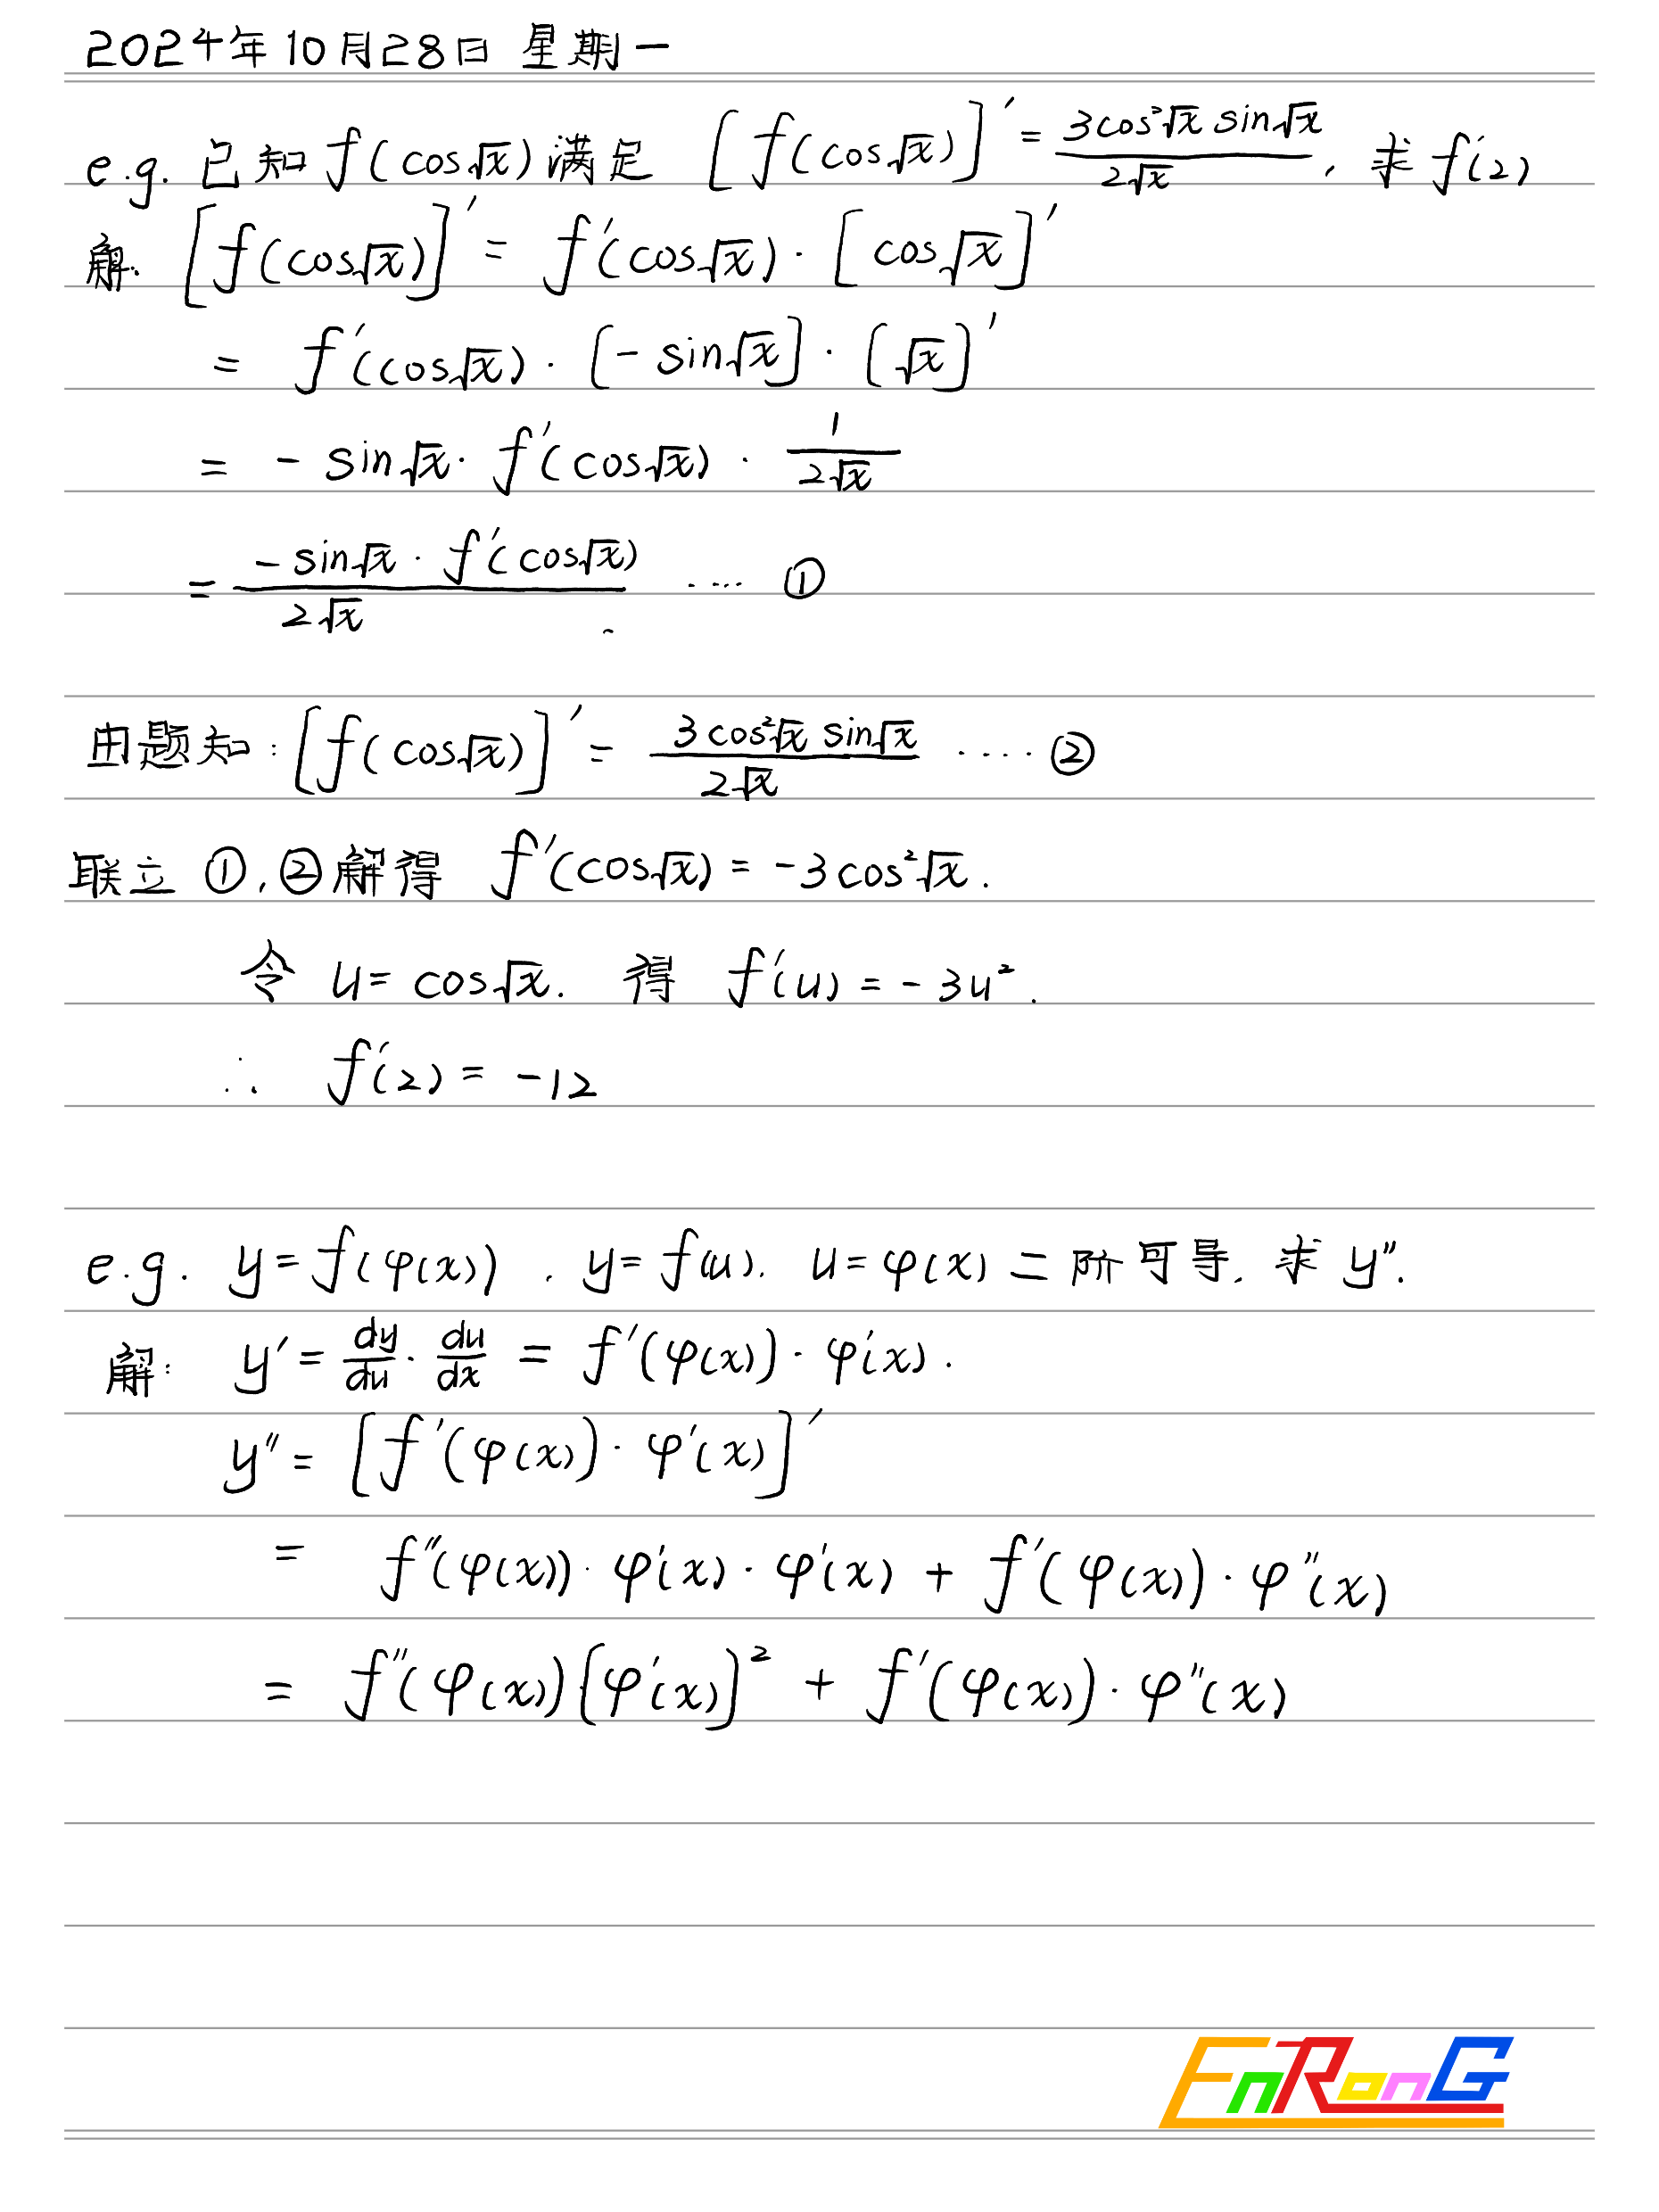 2024年10月28日 星期一
e.g. 已知 f(cos√x) 满足 [f(cos√x)]' = 3cos²√x sin√x / 2√x, 求 f'(2)
解: [f(cos√x)]' = f'(cos√x) · [cos√x]'
= f'(cos√x) · [-sin√x] · [√x]'
= -sin√x · f'(cos√x) · 1 / 2√x
= -sin√x · f'(cos√x) / 2√x ···· ①
由题知: [f(cos√x)]' = 3cos²√x sin√x / 2√x ···· ②
联立 ①, ② 解得 f'(cos√x) = -3cos²√x.
令 u = cos√x. 得 f'(u) = -3u².
∴ f'(2) = -12
e.g. y = f(φ(x)), y = f(u), u = φ(x) 二阶可导, 求 y".
解: y' = dy/du · du/dx = f'(φ(x)) · φ'(x).
y" = [f'(φ(x)) · φ'(x)]'
= f"(φ(x)) · φ'(x) · φ'(x) + f'(φ(x)) · φ"(x)
= f"(φ(x)) [φ'(x)]² + f'(φ(x)) · φ"(x)
EnRonG